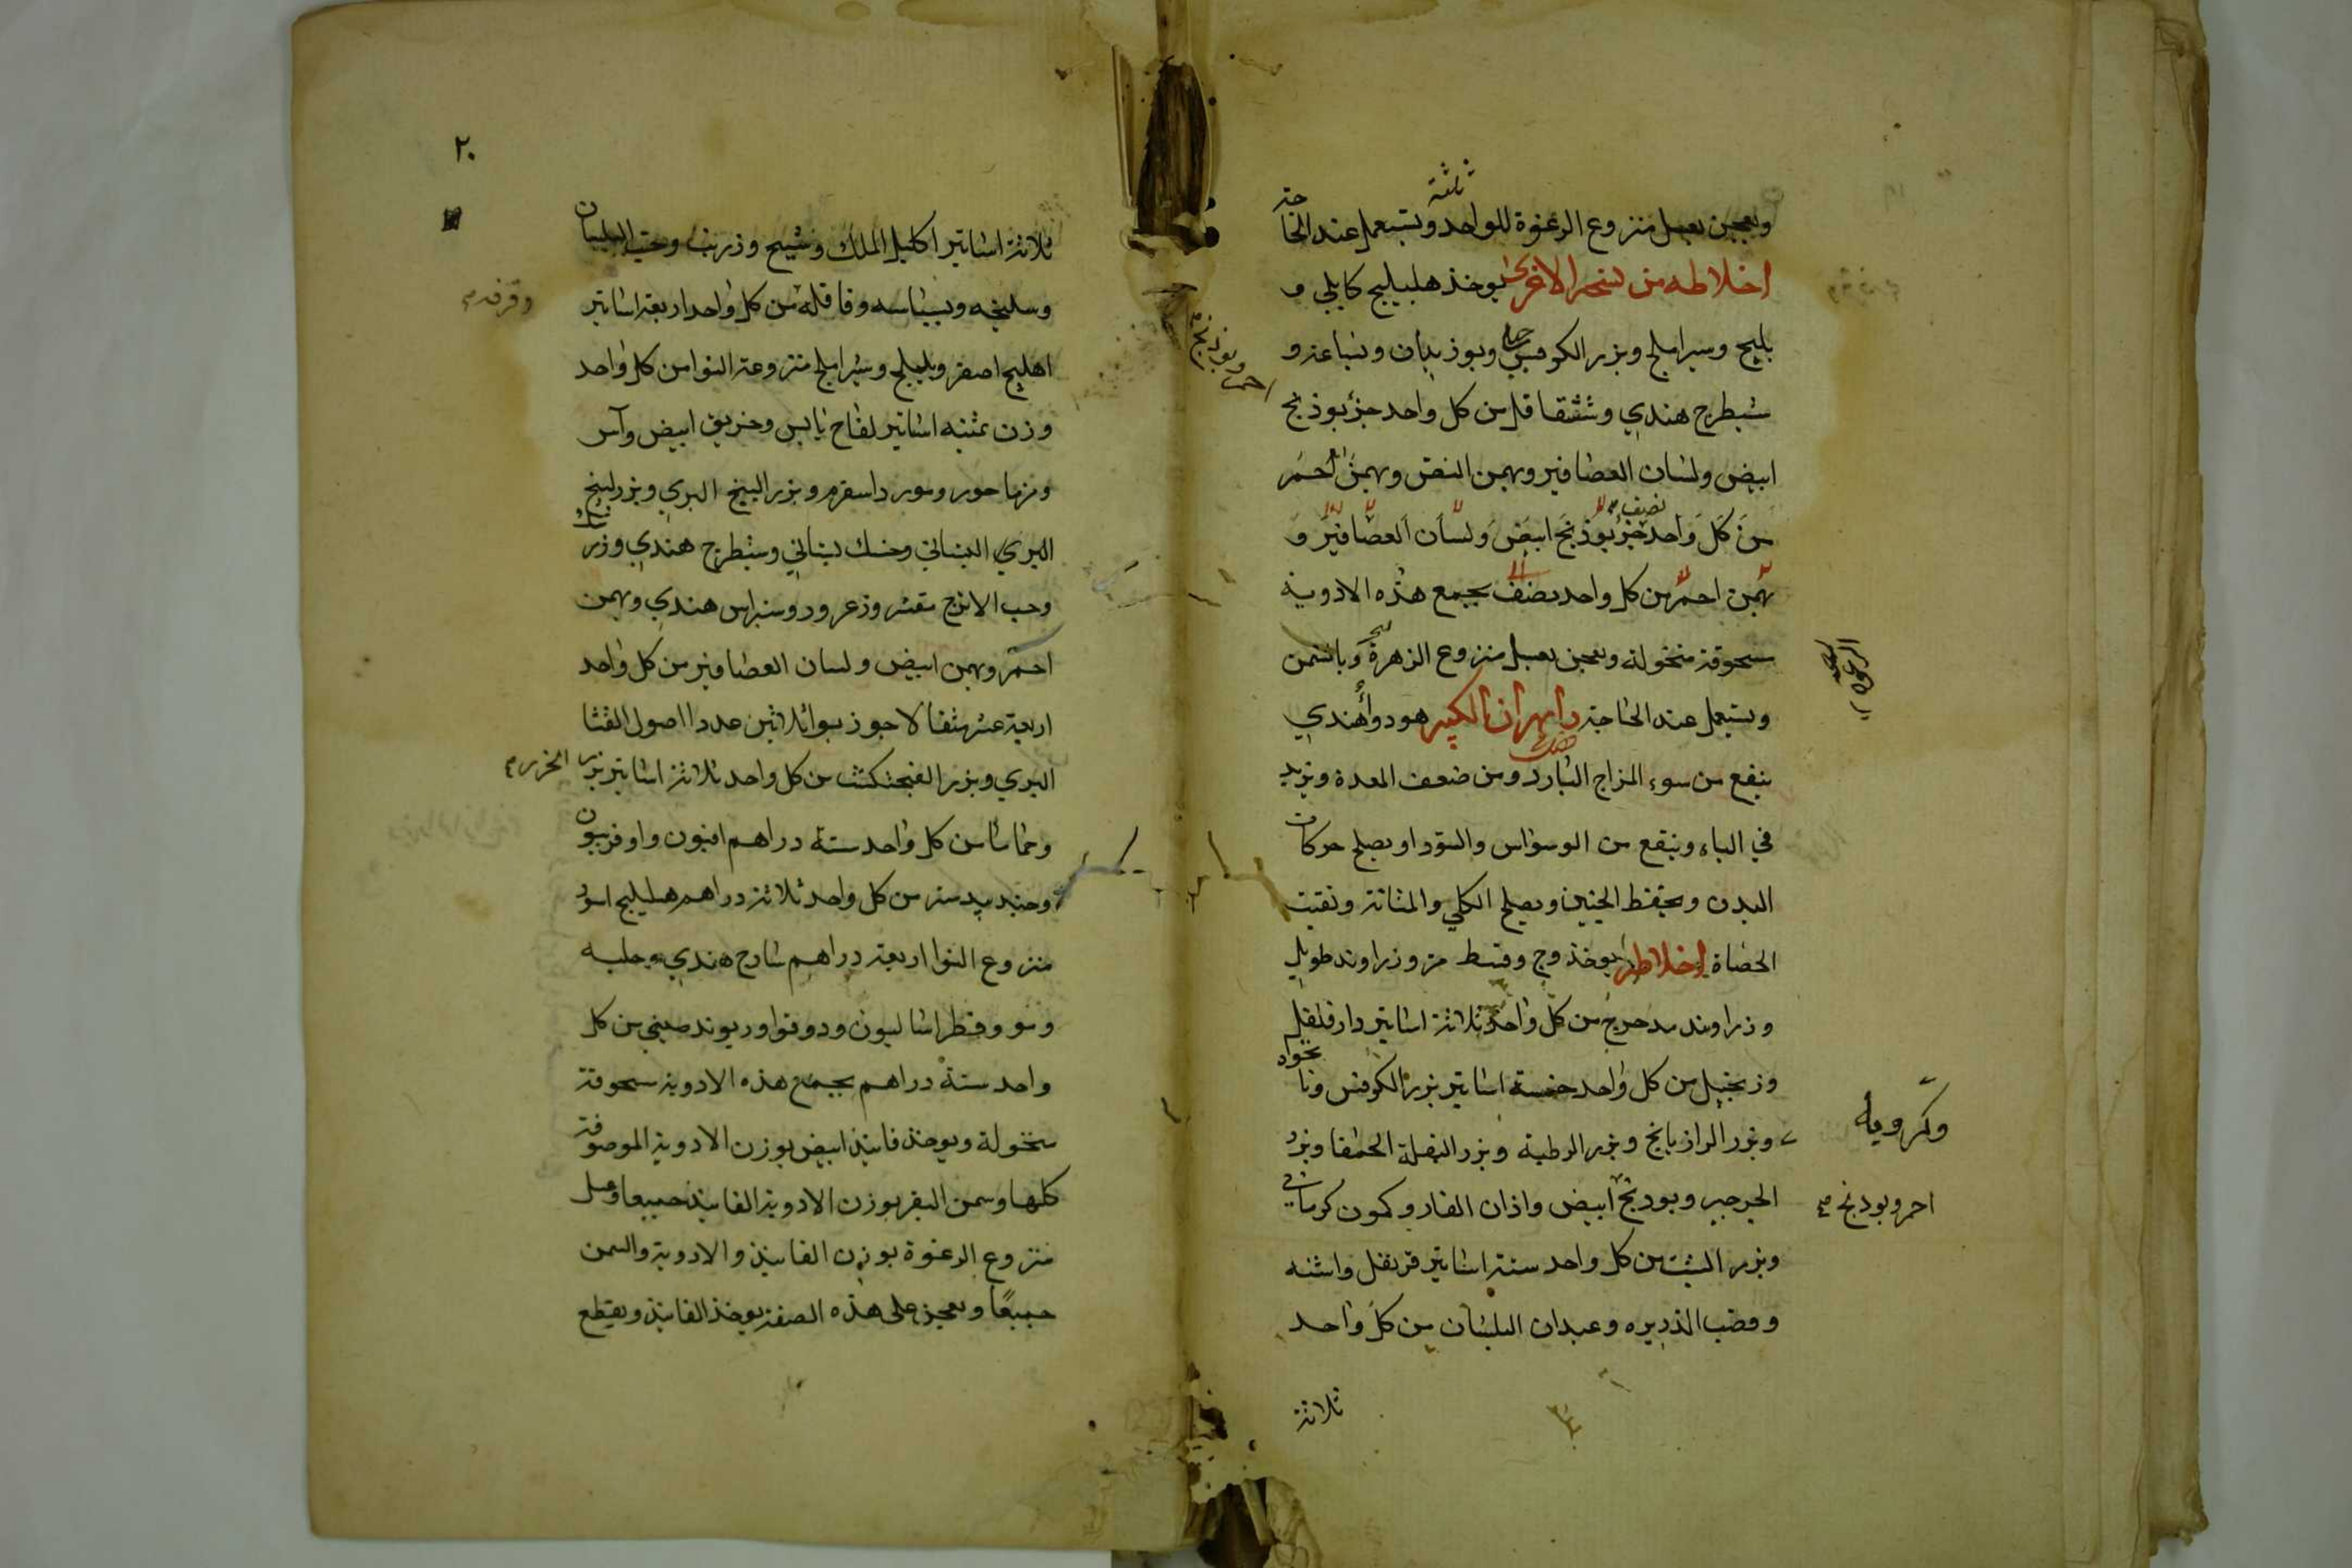 ويعجن بعسل منزوع الرغوة للواحد ثلثة ويستعمل عند الحاجة
اخلاطه من نسخة الاخرى يوخذ هليليج كابلي و
بليلج وسيراملج وبزر الكرفس وبوزيدان وبسباسه و
شيطرج هندي وشقاقل من كل واحد جزء بوذنج
ابيض ولسان العصافير وبهمن ابيض وبهمن احمر
من كل واحد جزء بوذنج ابيض ولسان العصافير و
بهمن احمر من كل واحد نصف يجمع هذه الادوية
مسحوقة منخولة ويعجن بعسل منزوع الزهرة وبالسمن
ويستعمل عند الحاجة دابهران الكبير هو دواء هندي
ينفع من سوء المزاج البارد ومن ضعف المعدة ويزيد
في الباء وينفع من الوسواس والسودا ويصلح حركات
البدن ويحفظ الجنين ويصلح الكلي والمثانة ويفتت
الحصاة اخلاطه يوخذ وج وقسط مر وزراوند طويل
وزراوند مدحرج من كل واحد ثلاثة اساتير دارفلفل
وزنجبيل من كل واحد خمسة اساتير بزر الكرفس ونانخواه
وبزر الرازيانج وبزر الرطبة وبزر البقلة الحمقا وبزر
وكرويه
الجرجير وبودنج ابيض واذان الفار وكمون كرماني
احمر وبودنج صح
وبزر الشبت من كل واحد ستة اساتير قرنفل واشنه
وقصب الذريره وعيدان البلسان من كل واحد
ثلاثة
٢٠
ثلاثة اساتير اكليل الملك وشيح وزرنب وحب البلسان
وسليخه وبسباسه وقاقله من كل واحد اربعة اساتير
وقرفه صح
اهليلج اصفر وبليلج وسيراملج منزوعة النوا من كل واحد
وزن ثمنيه اساتير لفاح يابس وخربق ابيض وآس
ومرماحور ومورداسفرم وبزر البنج البري وبزر البنج
البري البستاني وحسك بستاني وشيطرج هندي وزرنباد
وحب الاترج مقشر وزعرور وسنراس هندي وبهمن
احمر وبهمن ابيض ولسان العصافير من كل واحد
اربعة عشر مثقالا جوز بوا ثلاثين عددا اصول القثا
البري وبزر الفنجنكشت من كل واحد ثلاثة اساتير بزر الجزر صح
وحماما من كل واحد ستة دراهم افيون وافربيون
وجندبيدستر من كل واحد ثلاثة دراهم هليليج اسود
منزوع النوا اربعة دراهم سادج هندي وحلبه
ومو وفطراساليون ودوقوا وريوند صيني من كل
واحد ستة دراهم يجمع هذه الادوية مسحوقة
منخولة ويوخذ فانيذ ابيض بوزن الادوية الموصوفة
كلها وسمن البقر بوزن الادوية الفانيذ جميعا وعسل
منزوع الرغوة بوزن الفانيذ والادوية والسمن
جميعًا ويعجن على هذه الصفة يوخذ الفانيذ ويقطع